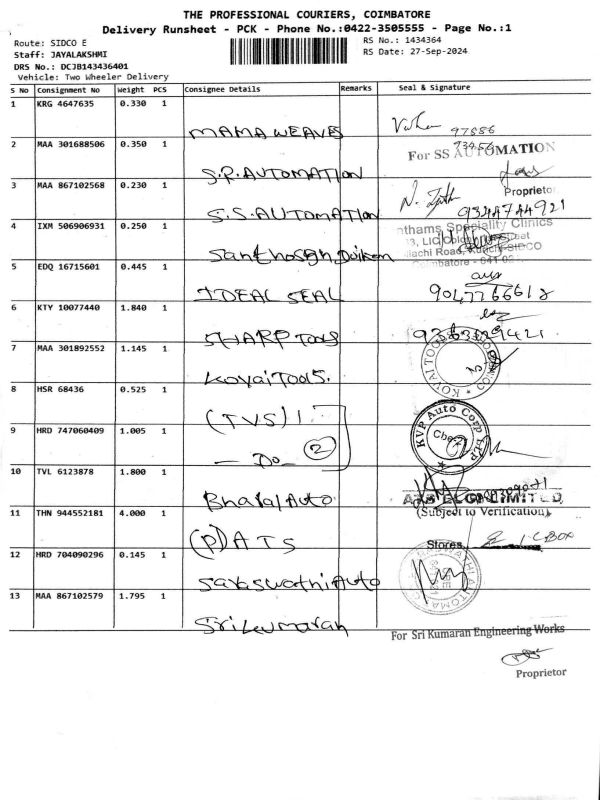 THE PROFESSIONAL COURIERS, COIMBATORE
Delivery Runsheet - PCK - Phone No.:0422-3505555 - Page No.:1
Route: SIDCO E
Staff: JAYALAKSHMI
DRS No.: DCJB143436401
Vehicle: Two Wheeler Delivery
RS No.: 1434364
RS Date: 27-Sep-2024
S No Consignment No Weight PCS Consignee Details Remarks Seal & Signature
1 KRG 4647635 0.330 1
MAMA WEAVES 97886
2 MAA 301688506 0.350 1
73456
For SS AUTOMATION
S.R.AUTOMATION
3 MAA 867102568 0.230 1
Proprietor
S.S.AUTOMATION 9344744921
4 IXM 506906931 0.250 1
Speciality Clinics
Coimbatore - 641 02
5 EDQ 16715601 0.445 1
IDEAL SEAL 9047766612
6 KTY 10077440 1.840 1
SHARP TOOLS
7 MAA 301892552 1.145 1
KOVAI TOOLS
Kovai Tools.
8 HSR 68436 0.525 1
(TVS) 1
KVP Auto Corp LLP
9 HRD 747060409 1.005 1
- Do - 2
10 TVL 6123878 1.800 1
Bharat Auto
ELGI LIMITED
(Subject to Verification)
11 THN 944552181 4.000 1
(P) ATS
Stores
1 C BOX
12 HRD 704090296 0.145 1
Saraswathi Auto
13 MAA 867102579 1.795 1
Sri Kumaran
For Sri Kumaran Engineering Works
Proprietor